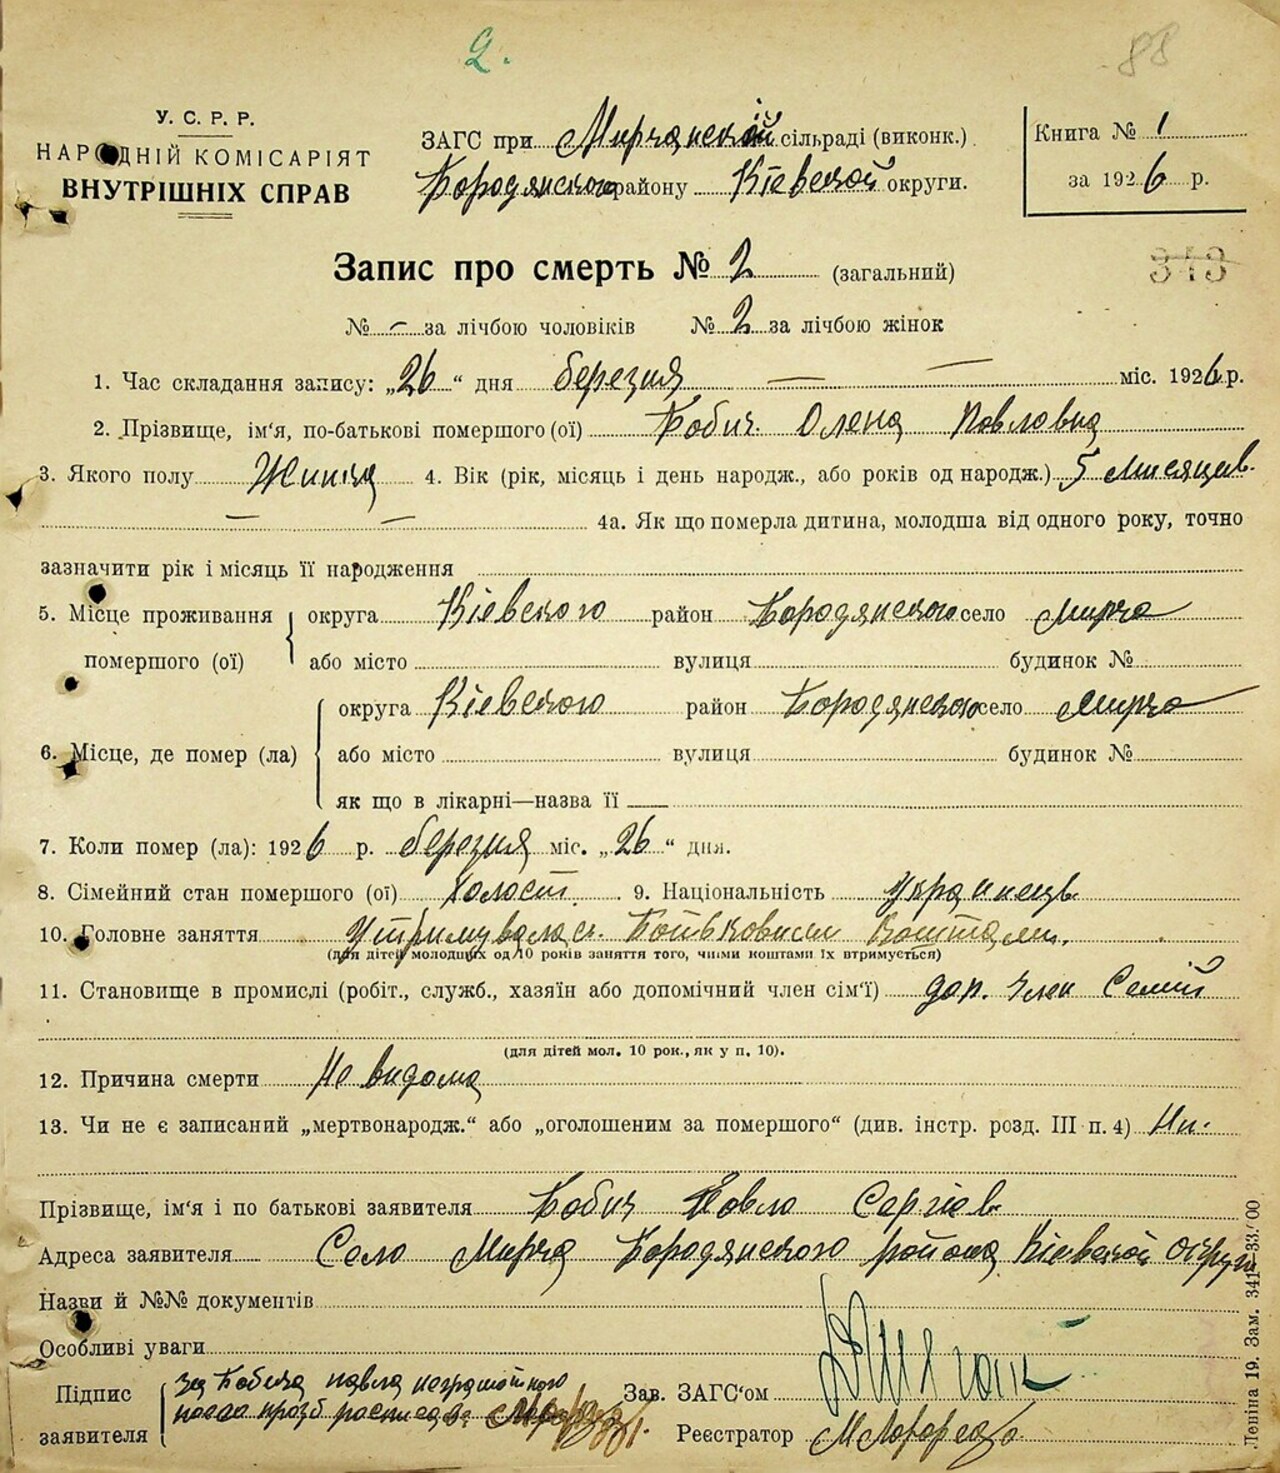 2.
88
У. С. Р. Р.
НАРОДНІЙ КОМІСАРІЯТ
ВНУТРІШНІХ СПРАВ
ЗАГС при Мирчанской сільраді (виконк.)
Бородянского району Кіевской округи.
Книга № 1
за 1926 р.
Запис про смерть № 2 (загальний)
№ — за лічбою чоловіків № 2 за лічбою жінок
1. Час складання запису: „26“ дня березня — — міс. 1926 р.
2. Прізвище, ім‘я, по-батькові помершого (ої) Бобич Олена Павловна
3. Якого полу 4. Вік (рік, місяць і день народж., або років од народж.) 5 мисяцив.
— — 4а. Як що померла дитина, молодша від одного року, точно
зазначити рік і місяць її народження
5. Місце проживання помершого (ої) округа Кіевского район Бородянского село Мирча
або місто вулиця будинок №
6. Місце, де помер (ла) округа Кіевского район Бородянского село Мирча
або місто вулиця будинок №
як що в лікарні—назва її
7. Коли помер (ла): 1926 р. березня міс. „26“ дня.
8. Сімейний стан помершого (ої) Холост. 9. Національність Украинець
10. Головне заняття Утримувалась Батьковими Коштами.
(для дітей молодших од 10 років заняття того, чиїми коштами їх втримується)
11. Становище в промислі (робіт., служб., хазяїн або допомічний член сім‘ї) доп. член Семії
(для дітей мол. 10 рок., як у п. 10).
12. Причина смерти Не видома
13. Чи не є записаний „мертвонародж.“ або „оголошеним за помершого“ (див. інстр. розд. III п. 4) Ни.
Прізвище, ім‘я і по батькові заявителя Бобич Павло Сергіев
Адреса заявителя Село Мирча Бородянского района Кіевской округи
Назви й №№ документів
Особливі уваги
Підпис заявителя за Бобича павла неграмотного
Зав. ЗАГС‘ом
Реєстратор
Леніна 19. Зам. 341